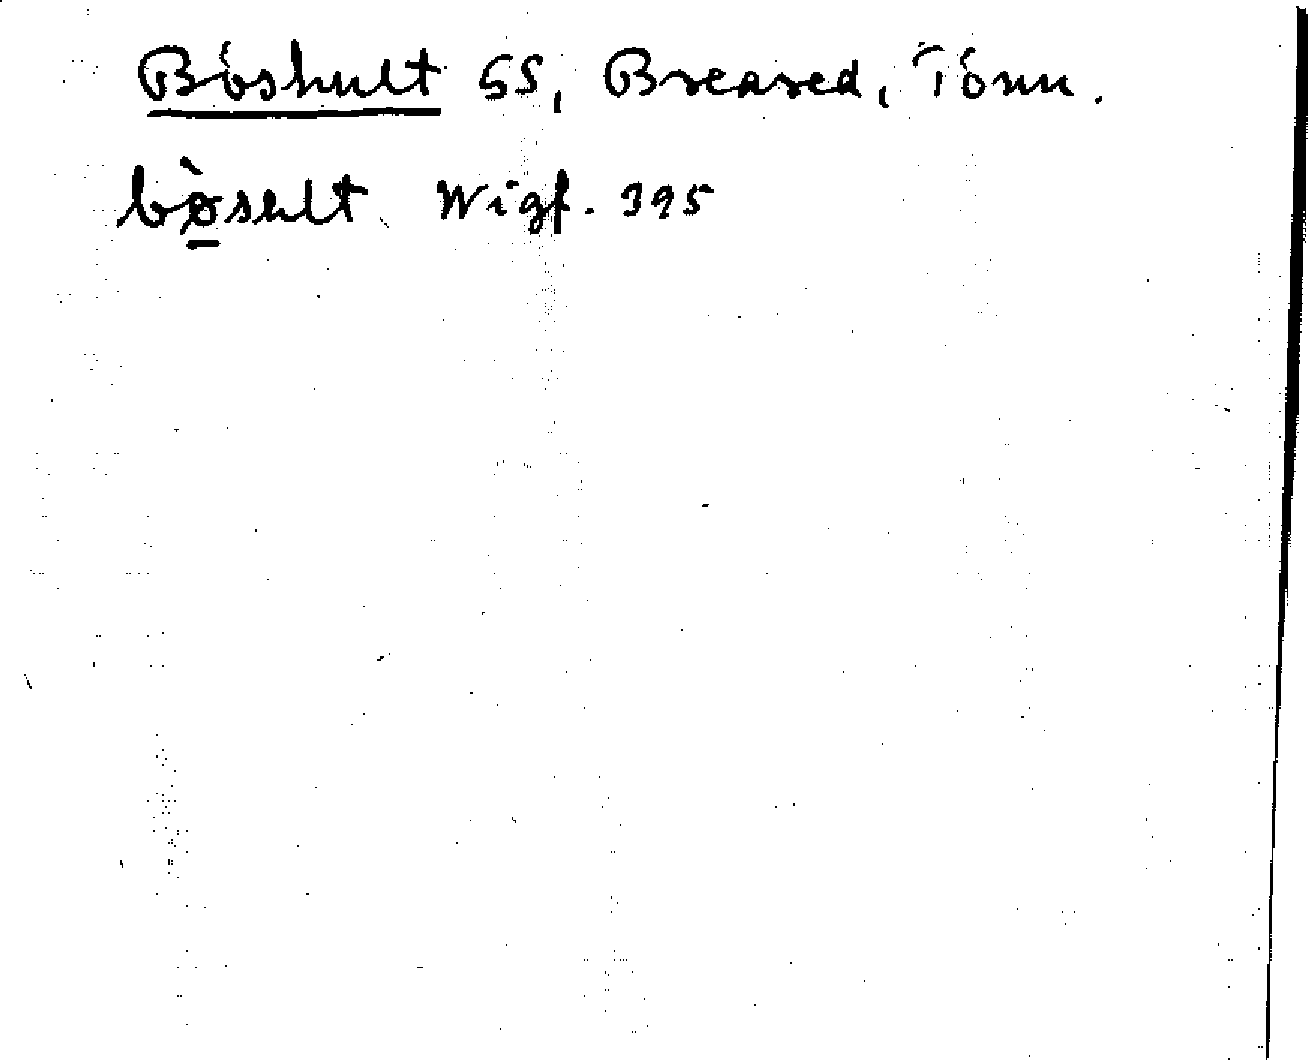 Böshult GS, Breared, Tönn.
bø̀sult Wigf. 395